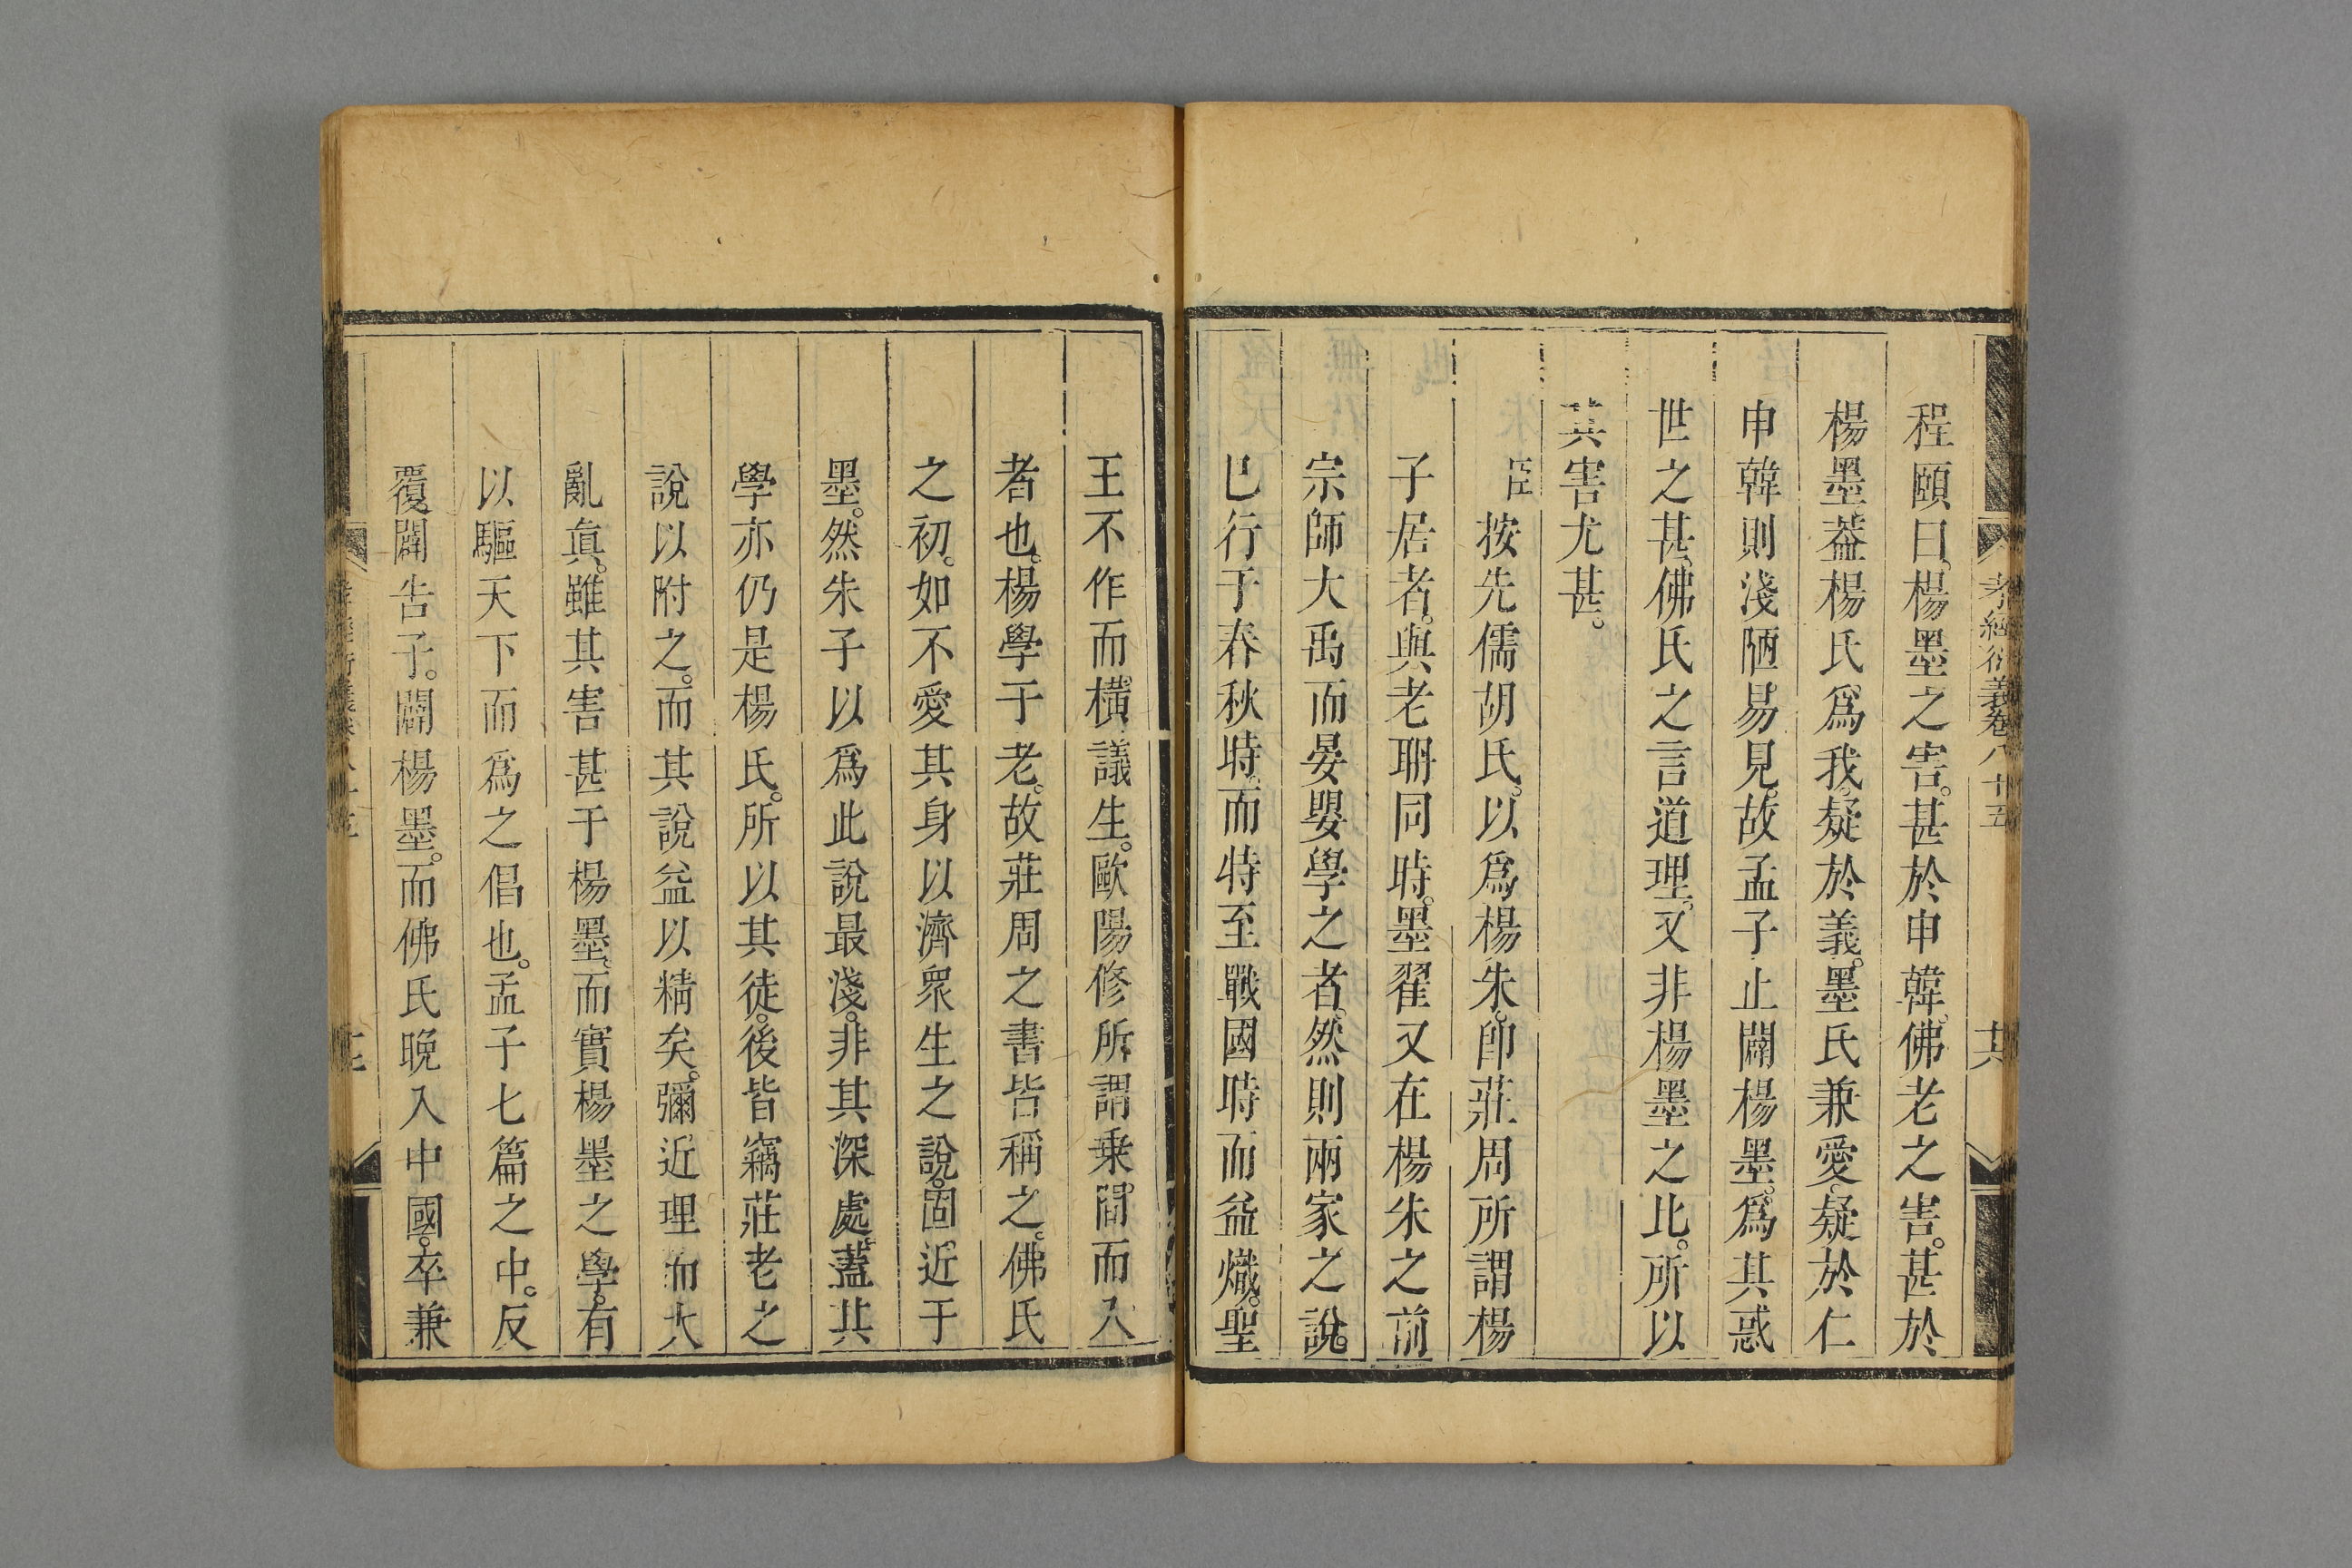 孝經衍義卷八十五
其
程頤曰。楊墨之害。甚於申韓。佛老之害。甚於
楊墨。葢楊氏爲我。疑於義。墨氏兼愛。疑於仁
申韓則淺陋易見。故孟子止闢楊墨。爲其惑
世之甚。佛氏之言道理。又非楊墨之比。所以
其害尤甚。
臣按先儒胡氏。以爲楊朱。卽莊周所謂楊
子居者。與老聃同時。墨翟又在楊朱之前
宗師大禹而晏嬰學之者。然則兩家之說。
巳行于春秋時。而特至戰國時而益熾。聖
王不作而橫議生。歐陽修所謂乗閒而入
者也。楊學于老。故莊周之書皆稱之。佛氏
之初。如不愛其身以濟衆生之說。固近于
墨。然朱子以爲此說最淺。非其深處。蓋其
學亦仍是楊氏。所以其徒。後皆竊莊老之
說以附之。而其說益以精矣。彌近理而大
亂眞。雖其害甚于楊墨。而實楊墨之學。有
以驅天下而爲之倡也。孟子七篇之中。反
覆闢告子。闢楊墨。而佛氏晚入中國。卒兼